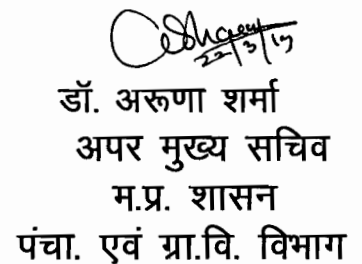 22/3/15
डॉ. अरूणा शर्मा
अपर मुख्य सचिव
म.प्र. शासन
पंचा. एवं ग्रा.वि. विभाग